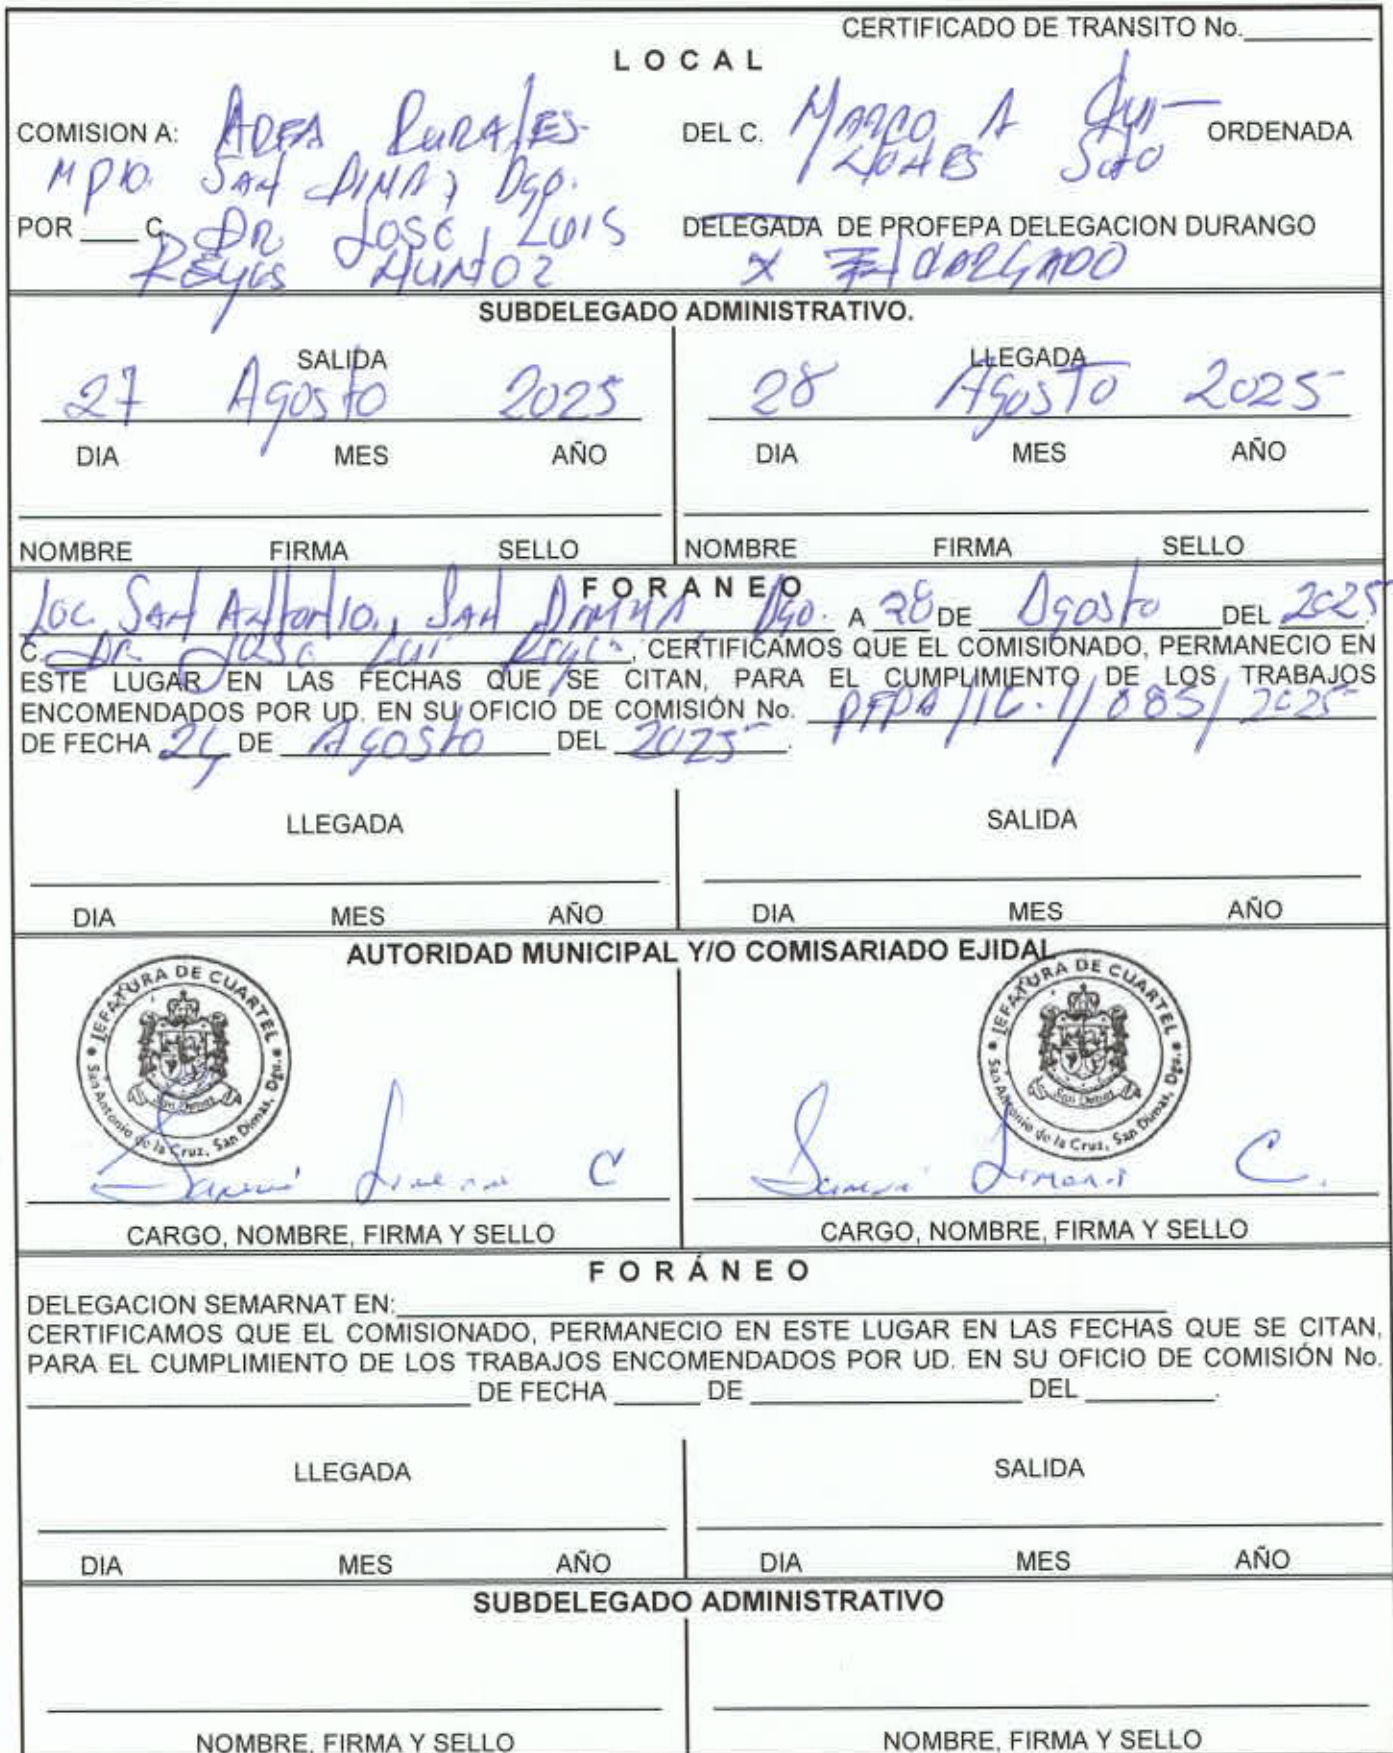 CERTIFICADO DE TRANSITO No.
LOCAL
COMISION A: AREA RURALES- DEL C. MARCO A QUI- ORDENADA
MPIO. SAN DIMAS, Dgo. ÑONES SOTO
POR C. DR JOSE LUIS DELEGADA DE PROFEPA DELEGACION DURANGO
REYES MUÑOZ X ENCARGADO
SUBDELEGADO ADMINISTRATIVO.
SALIDA LLEGADA
27 Agosto 2025 28 Agosto 2025
DIA MES AÑO DIA MES AÑO
NOMBRE FIRMA SELLO NOMBRE FIRMA SELLO
FORANEO
Loc. SAN ANTONIO, SAN DIMAS, Dgo. A 28 DE Agosto DEL 2025
C. DR JOSE LUIS REYES, CERTIFICAMOS QUE EL COMISIONADO, PERMANECIO EN
ESTE LUGAR EN LAS FECHAS QUE SE CITAN, PARA EL CUMPLIMIENTO DE LOS TRABAJOS
ENCOMENDADOS POR UD. EN SU OFICIO DE COMISIÓN No. PFPA/1C.1/085/2025
DE FECHA DE AGOSTO DEL 2025.
LLEGADA SALIDA
DIA MES AÑO DIA MES AÑO
AUTORIDAD MUNICIPAL Y/O COMISARIADO EJIDAL
JEFATURA DE CUARTEL
San Dimas
San Antonio de la Cruz, San Dimas, Dgo.
JEFATURA DE CUARTEL
San Dimas
San Antonio de la Cruz, San Dimas, Dgo.
CARGO, NOMBRE, FIRMA Y SELLO CARGO, NOMBRE, FIRMA Y SELLO
FORÁNEO
DELEGACION SEMARNAT EN:
CERTIFICAMOS QUE EL COMISIONADO, PERMANECIO EN ESTE LUGAR EN LAS FECHAS QUE SE CITAN,
PARA EL CUMPLIMIENTO DE LOS TRABAJOS ENCOMENDADOS POR UD. EN SU OFICIO DE COMISIÓN No.
DE FECHA DE DEL .
LLEGADA SALIDA
DIA MES AÑO DIA MES AÑO
SUBDELEGADO ADMINISTRATIVO
NOMBRE, FIRMA Y SELLO NOMBRE, FIRMA Y SELLO